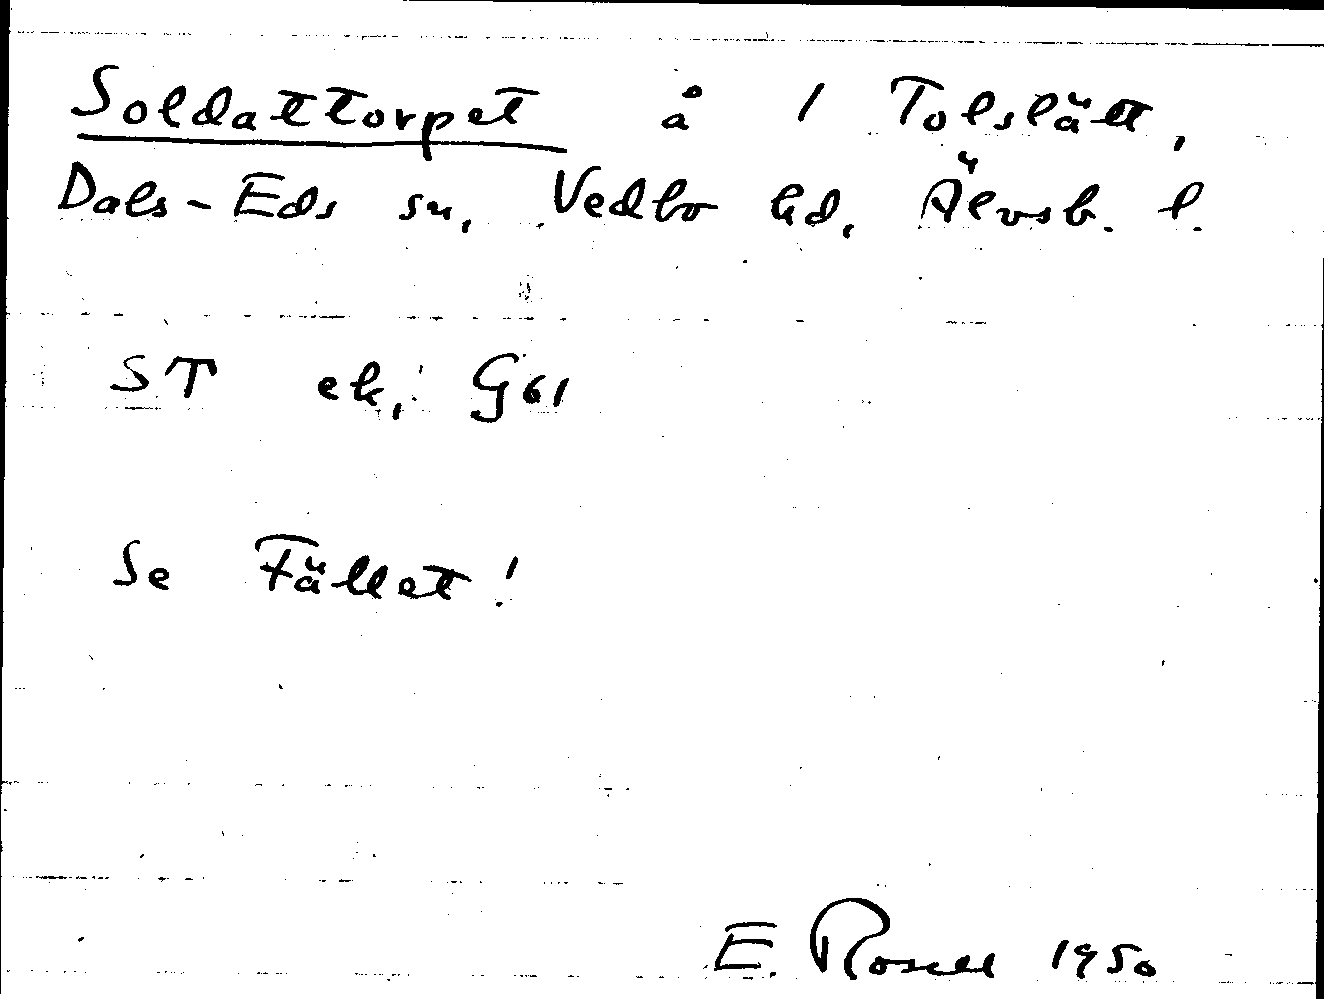 Soldattorpet å 1 Tolslätt,
Dals-Eds sn, Vedbo hd, Älvsb. l.
ST ek, G61
Se Fället!
E. Rosell 1950